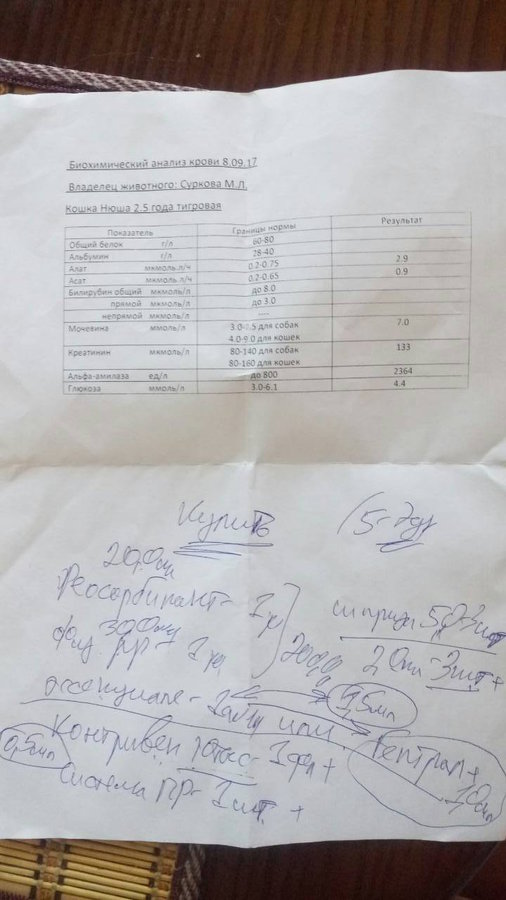 Биохимический анализ крови 8.09.17
Владелец животного: Суркова М.Л.
Кошка Нюша 2.5 года тигровая
Показатель Границы нормы Результат
Общий белок г/л 60-80
Альбумин г/л 28-40
Алат мкмоль.л/ч 0.2-0.75 2.9
Асат мкмоль л/ч 0.2-0.65 0.9
Билирубин общий мкмоль/л до 8.0
прямой мкмоль/л до 3.0
непрямой мкмоль/л ----
Мочевина ммоль/л 3.0-7.5 для собак 7.0
4.0-9.0 для кошек
Креатинин мкмоль/л 80-140 для собак 133
80-160 для кошек
Альфа-амилаза ед/л до 800 2364
Глюкоза ммоль/л 3.0-6.1 4.4
Купить
200мл
Реосорбилакт-
физ. рр-
эссенциале- или
0,5мл
Контривен - 1фл+
Гептрал+
система ПР- 1шт. +
2,0мл-3шт+